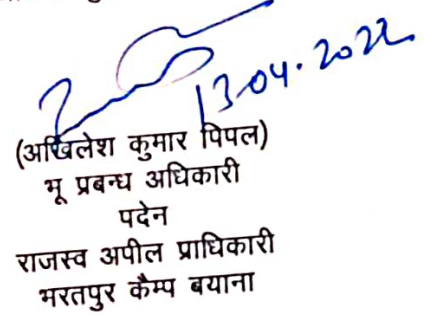 13.04.2022
(अखिलेश कुमार पिपल)
भू प्रबन्ध अधिकारी
पदेन
राजस्व अपील प्राधिकारी
भरतपुर कैम्प बयाना